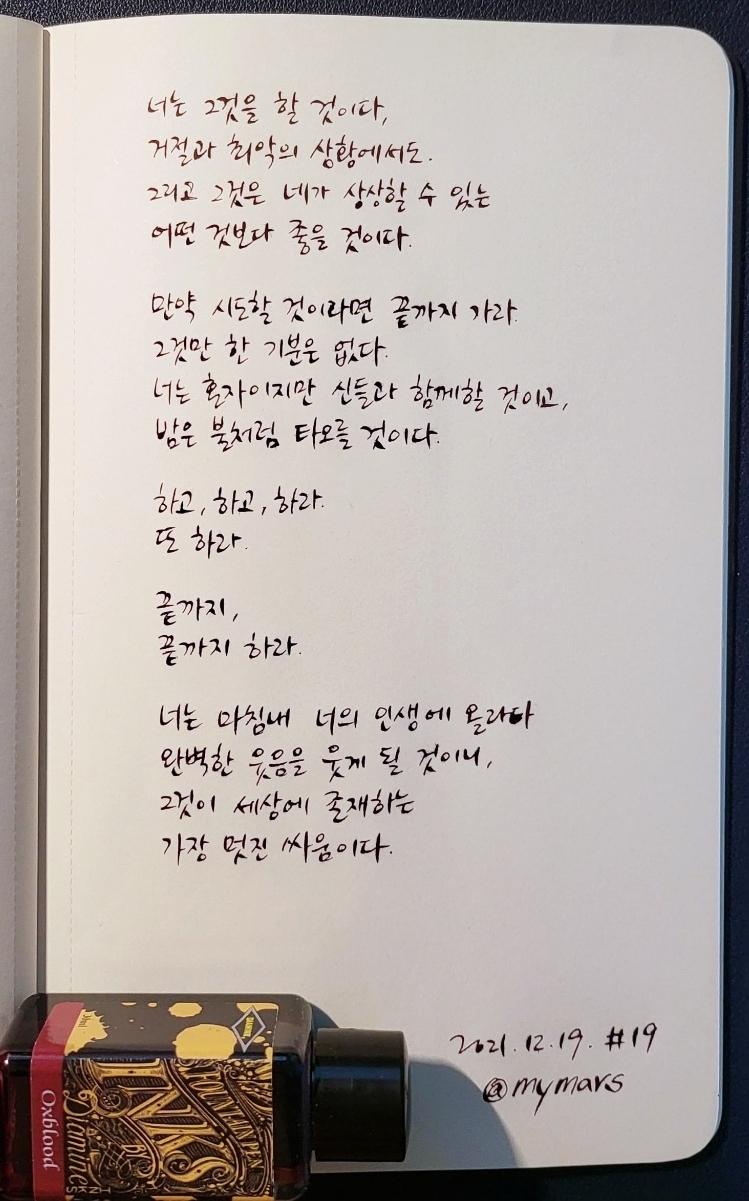 너는 그것을 할 것이다,
거절과 최악의 상황에서도.
그리고 그것은 네가 상상할 수 있는
어떤 것보다 좋을 것이다.
만약 시도할 것이라면 끝까지 가라.
그것만 한 기분은 없다.
너는 혼자이지만 신들과 함께할 것이고,
밤은 불처럼 타오를 것이다.
하고, 하고, 하라.
또 하라.
끝까지,
끝까지 하라.
너는 마침내 너의 인생에 올라타
완벽한 웃음을 웃게 될 것이니,
그것이 세상에 존재하는
가장 멋진 싸움이다.
2021.12.19. #19
@mymars
Oxblood
Diamine
INKS
FOUNTAIN PEN